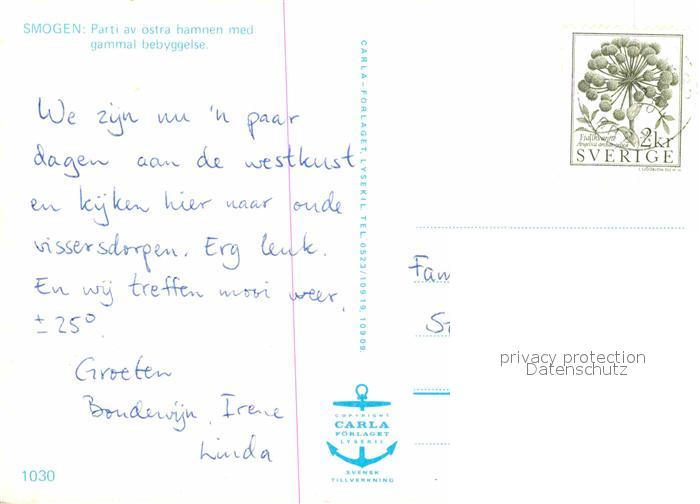 SMOGEN: Parti av östra hamnen med
gammal bebyggelse.
We zijn nu 'n paar
dagen aan de westkust
en kijken hier naar oude
vissersdorpen. Erg leuk.
En wij treffen mooi weer,
± 25°.
Groeten
Boudewijn, Irene
Linda
1030
CARLA-FÖRLAGET, LYSEKIL TEL 0523/109 19, 109 09
COPYRIGHT
CARLA
FÖRLAGET
LYSEKIL
SVENSK
TILLVERKNING
Fjällkvanne
Angelica archangelica
2kr
SVERIGE
Fam
privacy protection
Datenschutz